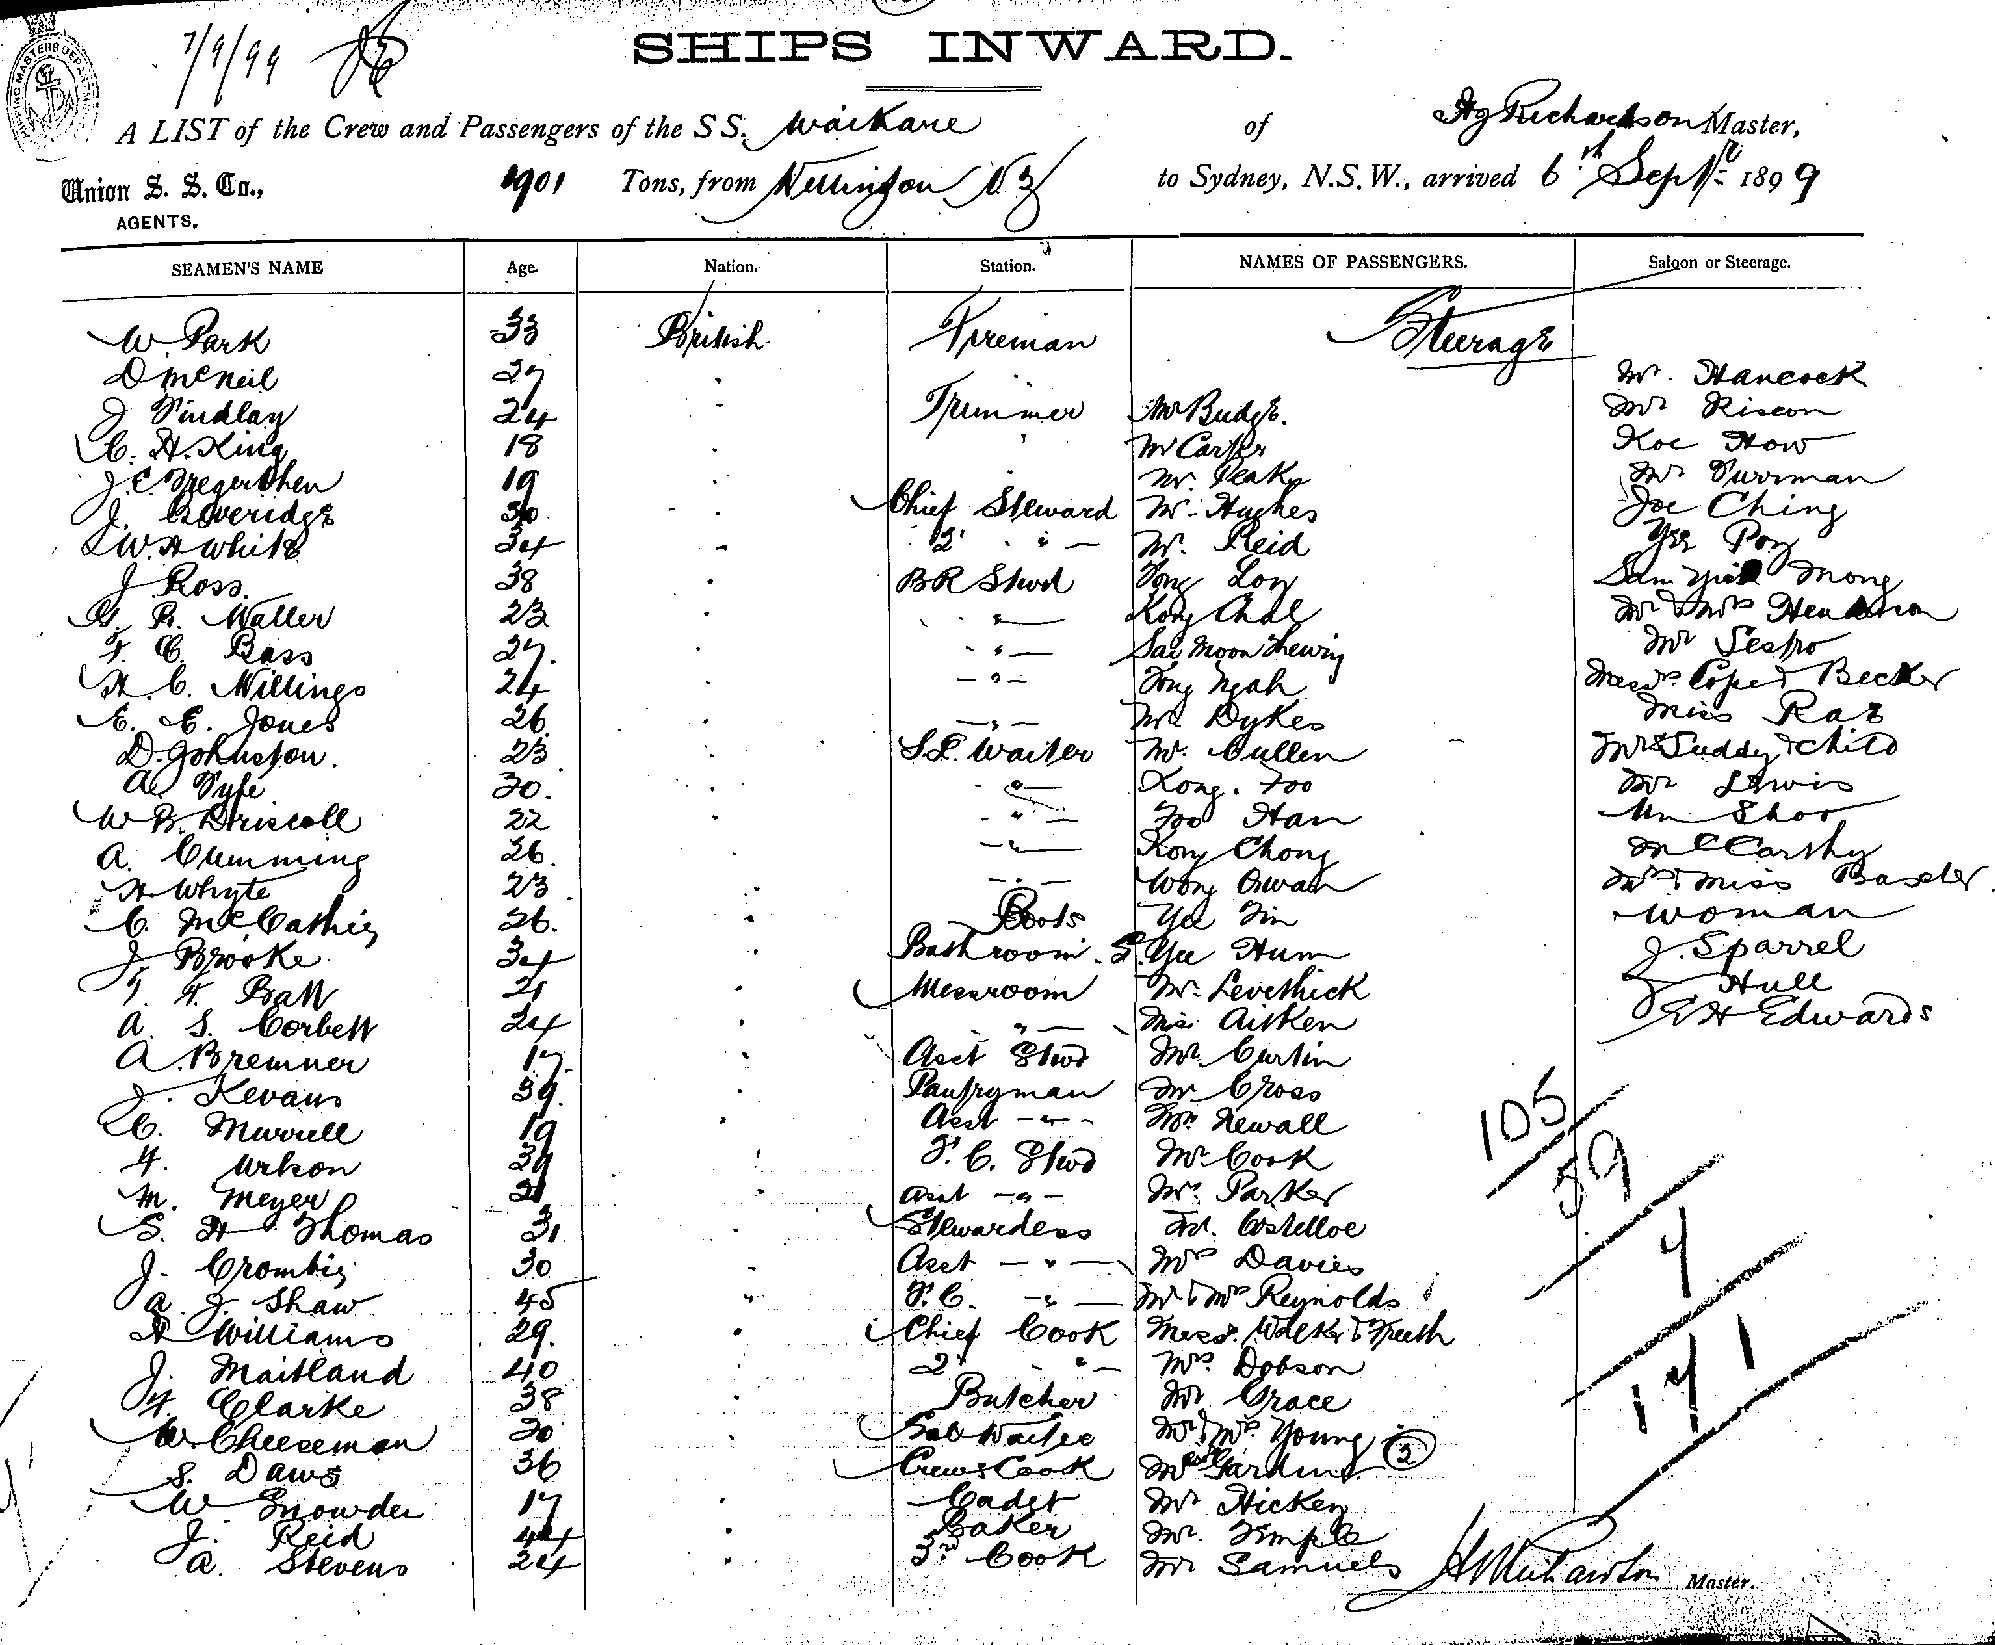 7/9/99
SHIPS INWARD.
A LIST of the Crew and Passengers of the SS. Waikare of Hy Richardson Master,
Union S. S. Co., 1901 Tons, from Wellington N Z to Sydney, N.S.W., arrived 6th Sept 1899
AGENTS.
SEAMEN'S NAME Age. Nation. Station. NAMES OF PASSENGERS. Saloon or Steerage.
W. Park 33 British Fireman Steerage
D McNeil 27 Mr. Hancock
J Findlay 24 Trimmer Mr Budge. Mr
C. H. King 18 Mr Carter Koe How
J. C. 19 Mr. Peake Mr
J. Beveridge 30 Chief Steward Mr. Hughes Joe Ching
W. H White 34 2 " — Mr. Reid Yee Poy
J Ross. 38 B R Stwd Tong Loy Sam Mong
R. Waller 23 — " — Kong Chal Mr & Mrs Henderson
F. C. Bass 27. — " — Sae Moon Mr
H. C. Willings 24 — " — Tong Ngah Messrs. Cope & Becker
E. E. Jones 26 — " — Mr. Dykes Miss Rae
D. Johnston. 23 S.L. Waiter Mr. Cullen Mrs & Child
A. Fyfe 30. — " — Kong. Foo Mr Lewis
W B. Driscoll 22 — " — Foo Han Mr Shor
A. Cumming 26. — " — Kong Chong McCarthy
H Whyte 23 — " — Wong Mrs & Miss Baxter.
C. McCathie 26. Boots Yee Tin woman
J Brooke 34 Bathroom. S. Yee Hum J. Sparrel
F. Ball 21 Messroom Mr. Levethick Hull
A. S. Corbett 24 — " — Aitken E H Edwards
A. Bremner 17. Asst Stwd Mr. Curtin
J. Kevans 39. Pantryman Mr Cross 105
C. Murrell 19 Asst — " — Newall
F. 39 F. C. Stwd Mr Cook 39
M. Meyer 21 Asst — " — Mr. Parker
S. H Thomas 31 Stewardess Mr. Costelloe
J. Crombie 30 Asst — " — Mrs Davies
A. J. Shaw 45 F. C. — " — Mr & Mrs Reynolds
H Williams 29. Chief Cook Messrs. Walker & Freeth 141
J. Maitland 40 2 " — Mrs. Dobson
F. Clarke 38 Butcher Mr Grace
W. Cheeseman 20 Waiter Mr & Mrs Young
S. Daws 36 Crews Cook Gardiner 2
W Snowden 17 Cadet Mr Hickey
J. Reid 44 Baker Mr. Temple
A. Stevens 24 3rd Cook Mr Samuels
H Richardson Master.